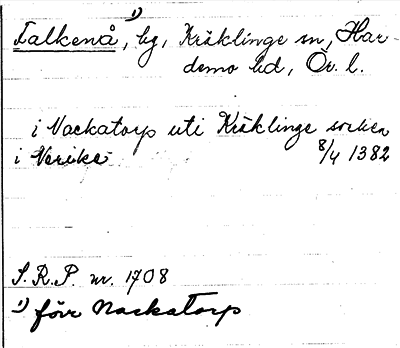 Falkenå, ¹⁾ hg, Kräklinge sn, Har-
demo hd, Ör. l.
i Nackatorp uti Kräklinge socken
i Nerike 8/4 1382
S.R.P. nr. 1708
¹⁾ förr Nackatorp